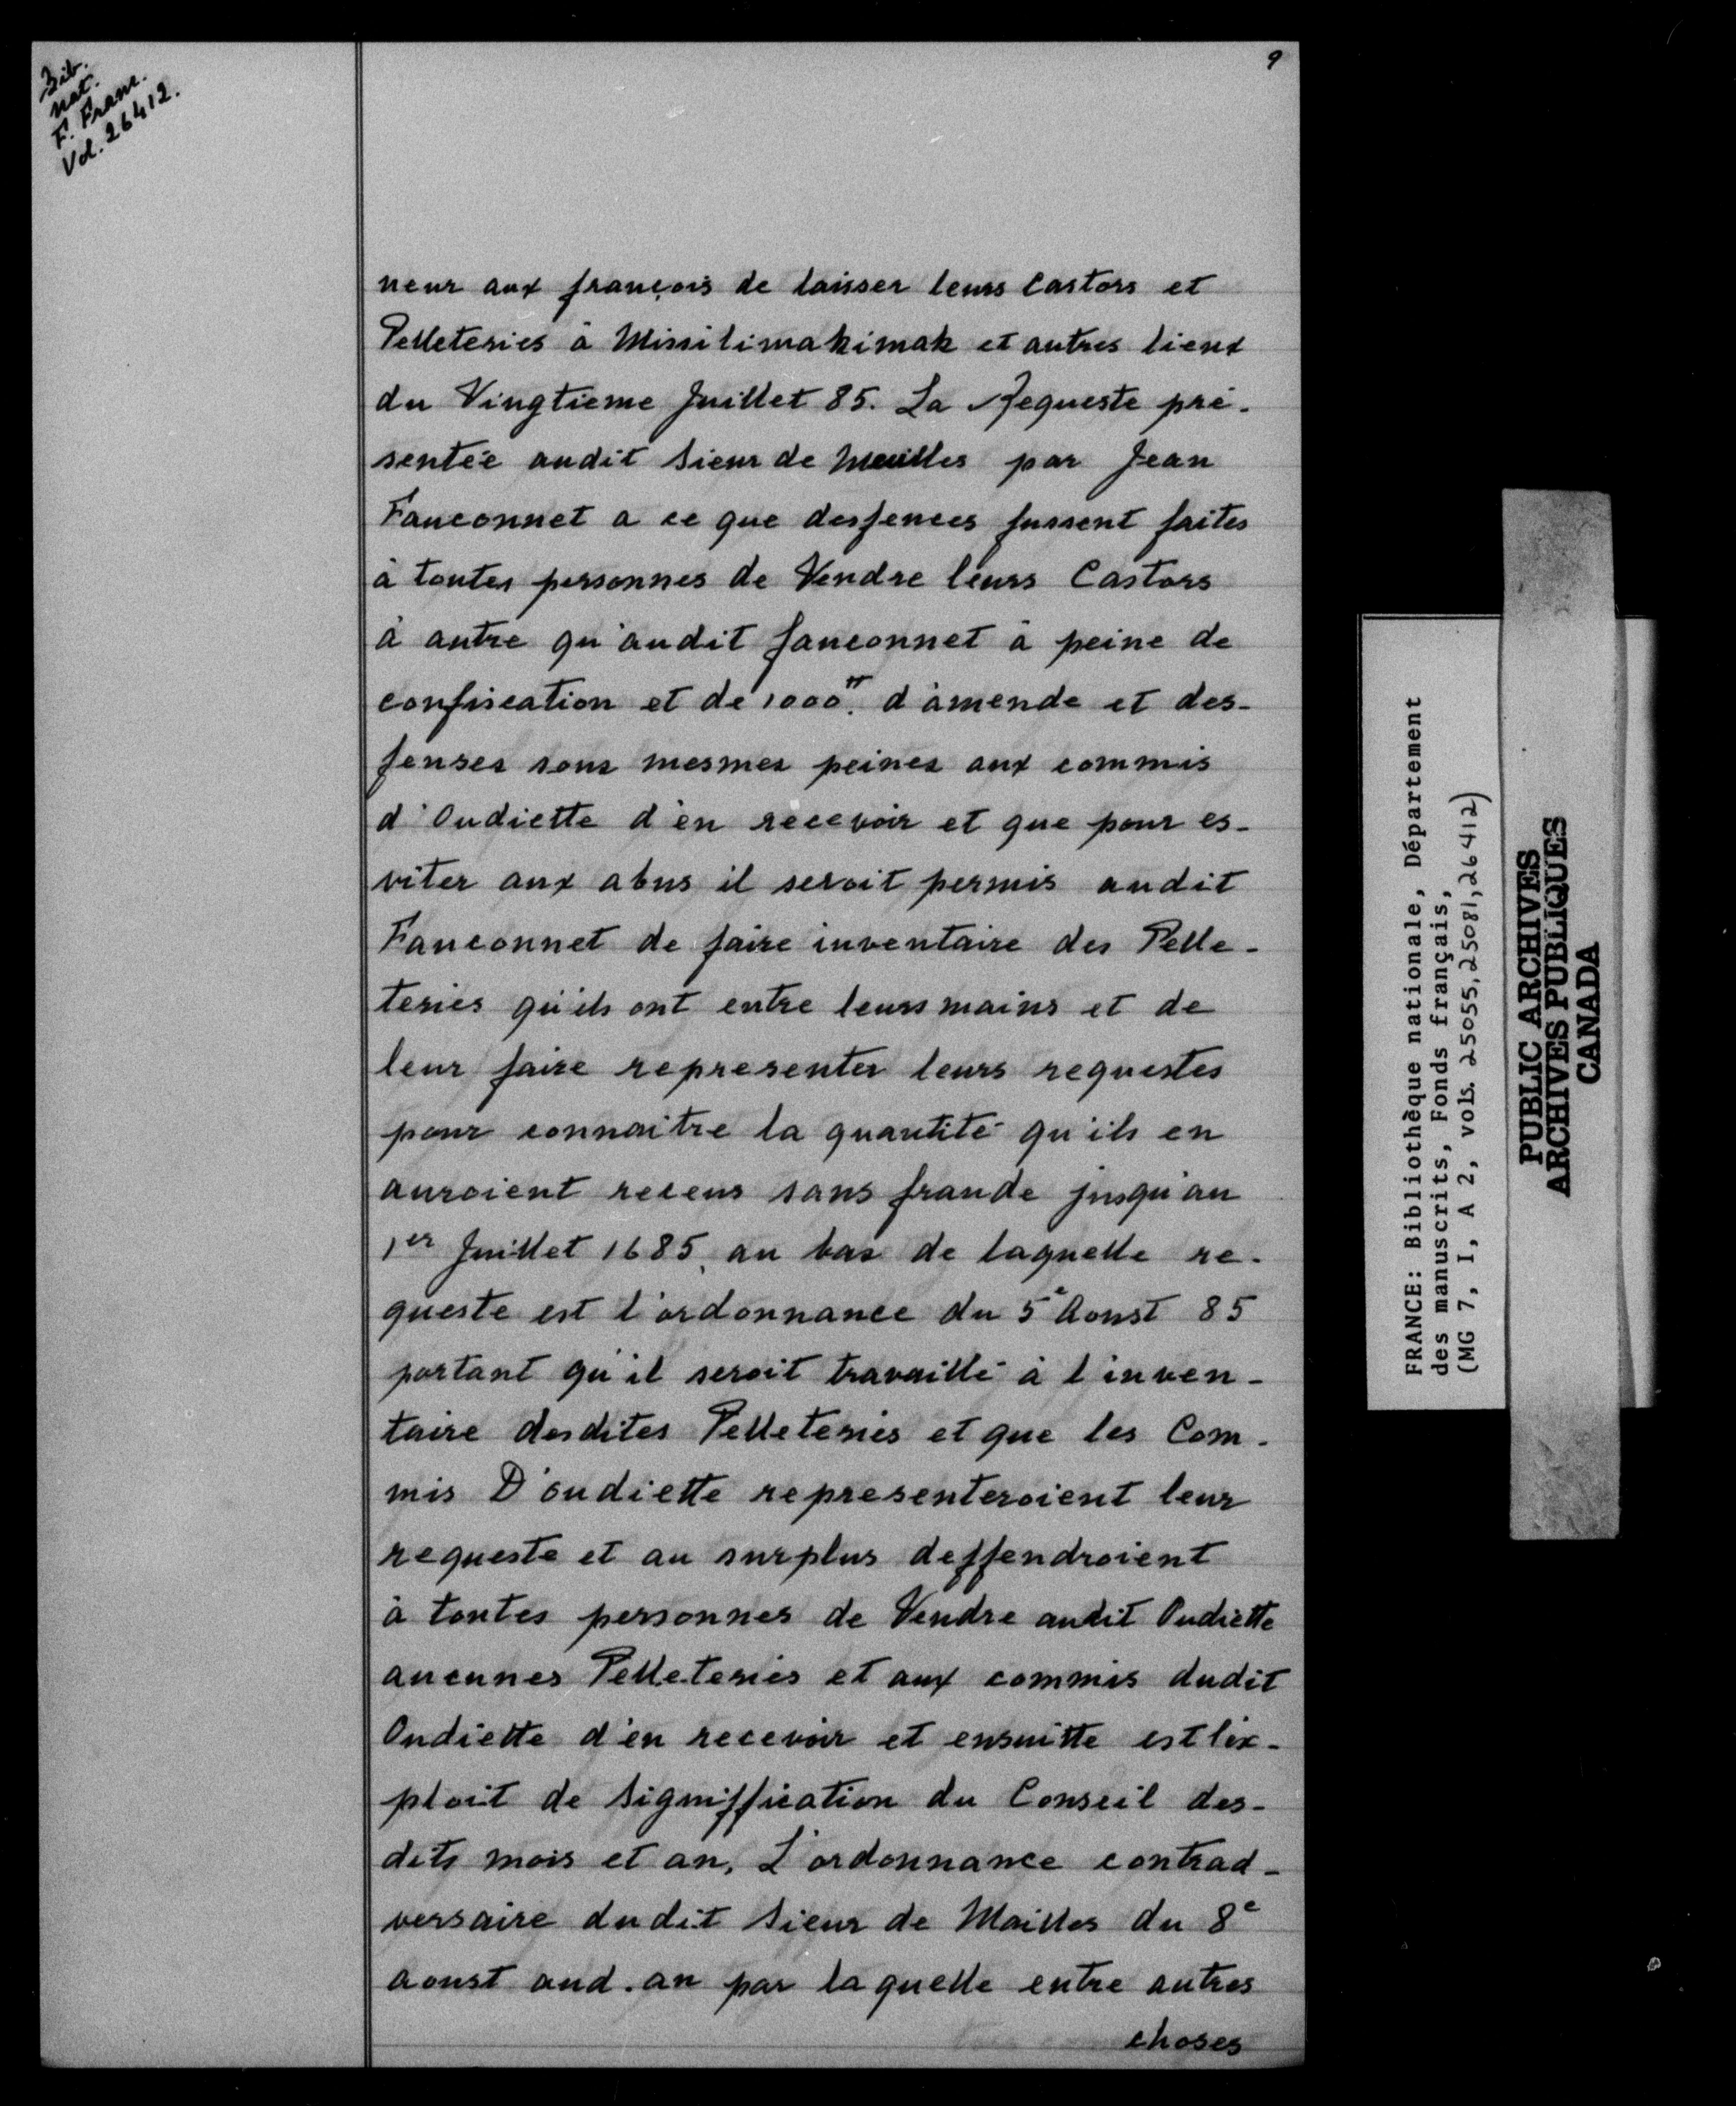 Bib.
nat.
F. Franc.
Vol. 26412.
9
neur aux françois de laisser leurs Castors et
Pelleteries à Missilimakimak et autres lieux
du Vingtieme Juillet 85. La Requeste pré-
sentée audit Sieur de Meulles par Jean
Fauconnet a ce que desfences fussent faites
à toutes personnes de Vendre leurs Castors
à autre qu'audit fauconnet à peine de
confiscation et de 1000tt. d'amende et des-
fenses sous mesmes peines aux commis
d'Oudiette d'en recevoir et que pour es-
viter aux abus il seroit permis audit
Fauconnet de faire inventaire des Pelle-
teries qu'ils ont entre leurs mains et de
leur faire representer leurs requestes
pour connaitre la quantité qu'ils en
auroient receus sans fraude jusqu'au
1er Juillet 1685, au bas de laquelle re-
queste est l'ordonnance du 5e Aoust 85
portant qu'il seroit travaillé à l'inven-
taire desdites Pelleteries et que les Com-
mis D'oudiette representeroient leur
requeste et au surplus deffendroient
à toutes personnes de Vendre audit Oudiette
aucunes Pelleteries et aux commis dudit
Oudiette d'en recevoir et ensuitte est l'ex-
ploit de Signiffication du Conseil des-
dits mois et an, L'ordonnance contrad-
versaire dudit Sieur de Mailles du 8e
aoust aud. an par laquelle entre autres
choses
FRANCE: Bibliothèque nationale, Département
des manuscrits, Fonds français,
(MG 7, I, A 2, vols. 25055, 25081, 26412)
PUBLIC ARCHIVES
ARCHIVES PUBLIQUES
CANADA